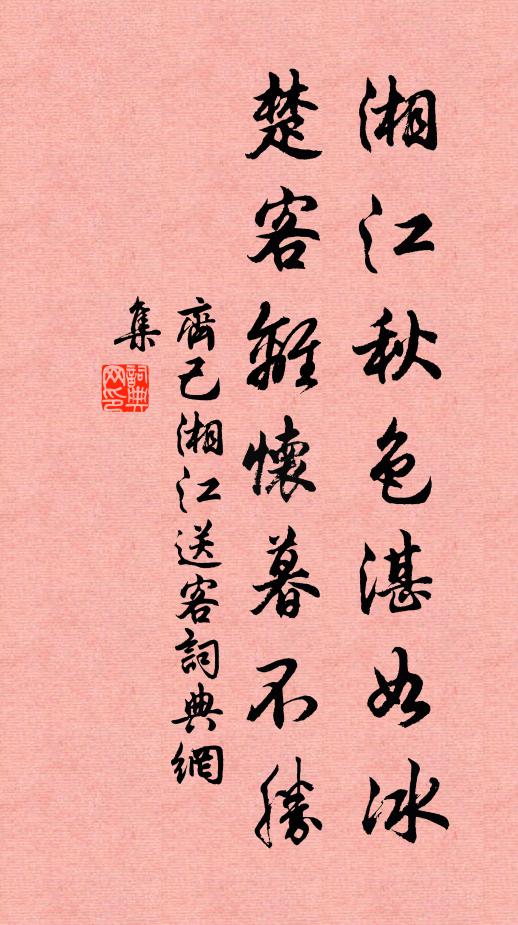 湘江秋色湛如冰
楚客離懷暮不勝
齊己湘江送客詞典網
集
詞典網印